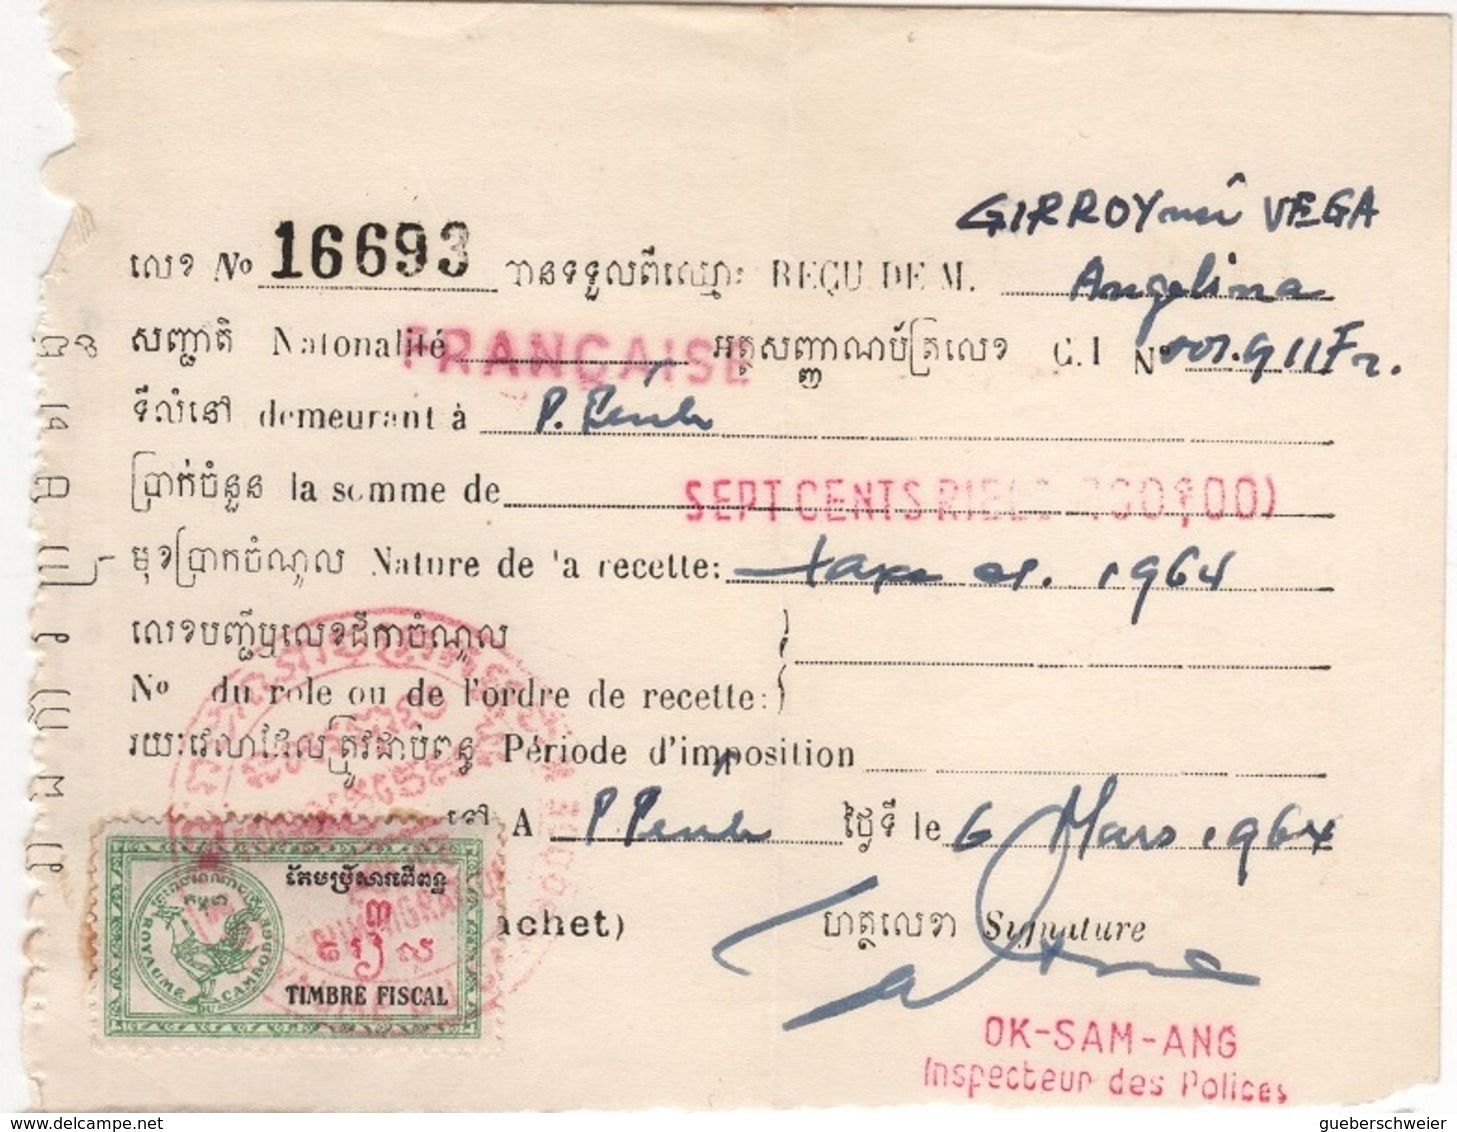 GIRROY née VEGA
លេខ No 16693 បានទទួលពីឈ្មោះ REÇU DE M. Angelina
សញ្ជាតិ Natonalité FRANÇAISE អត្តសញ្ញាណប័ត្រលេខ C.I No 007.911Fr.
ទីលំនៅ demeurant à P. Penh
ប្រាក់ចំនួន la somme de SEPT CENTS RIELS
មុខប្រាក់ចំណូល Nature de la recette: taxe 1964
លេខបញ្ជីឬលេខដីកាចំណូល
No du role ou de l'ordre de recette:
រយៈវេលាដែលត្រូវជាប់ពន្ធ Période d'imposition
នៅ A P Penh ថ្ងៃទី le 6 Mars 1964
achet) ហត្ថលេខា Signature
តែមប្រិ៍សារពើពន្ធ
៣
រៀល
TIMBRE FISCAL
កម្ពុជា
ROYAUME DU CAMBODGE
OK-SAM-ANG
Inspecteur des Polices
delcampe.net
gueberschweier